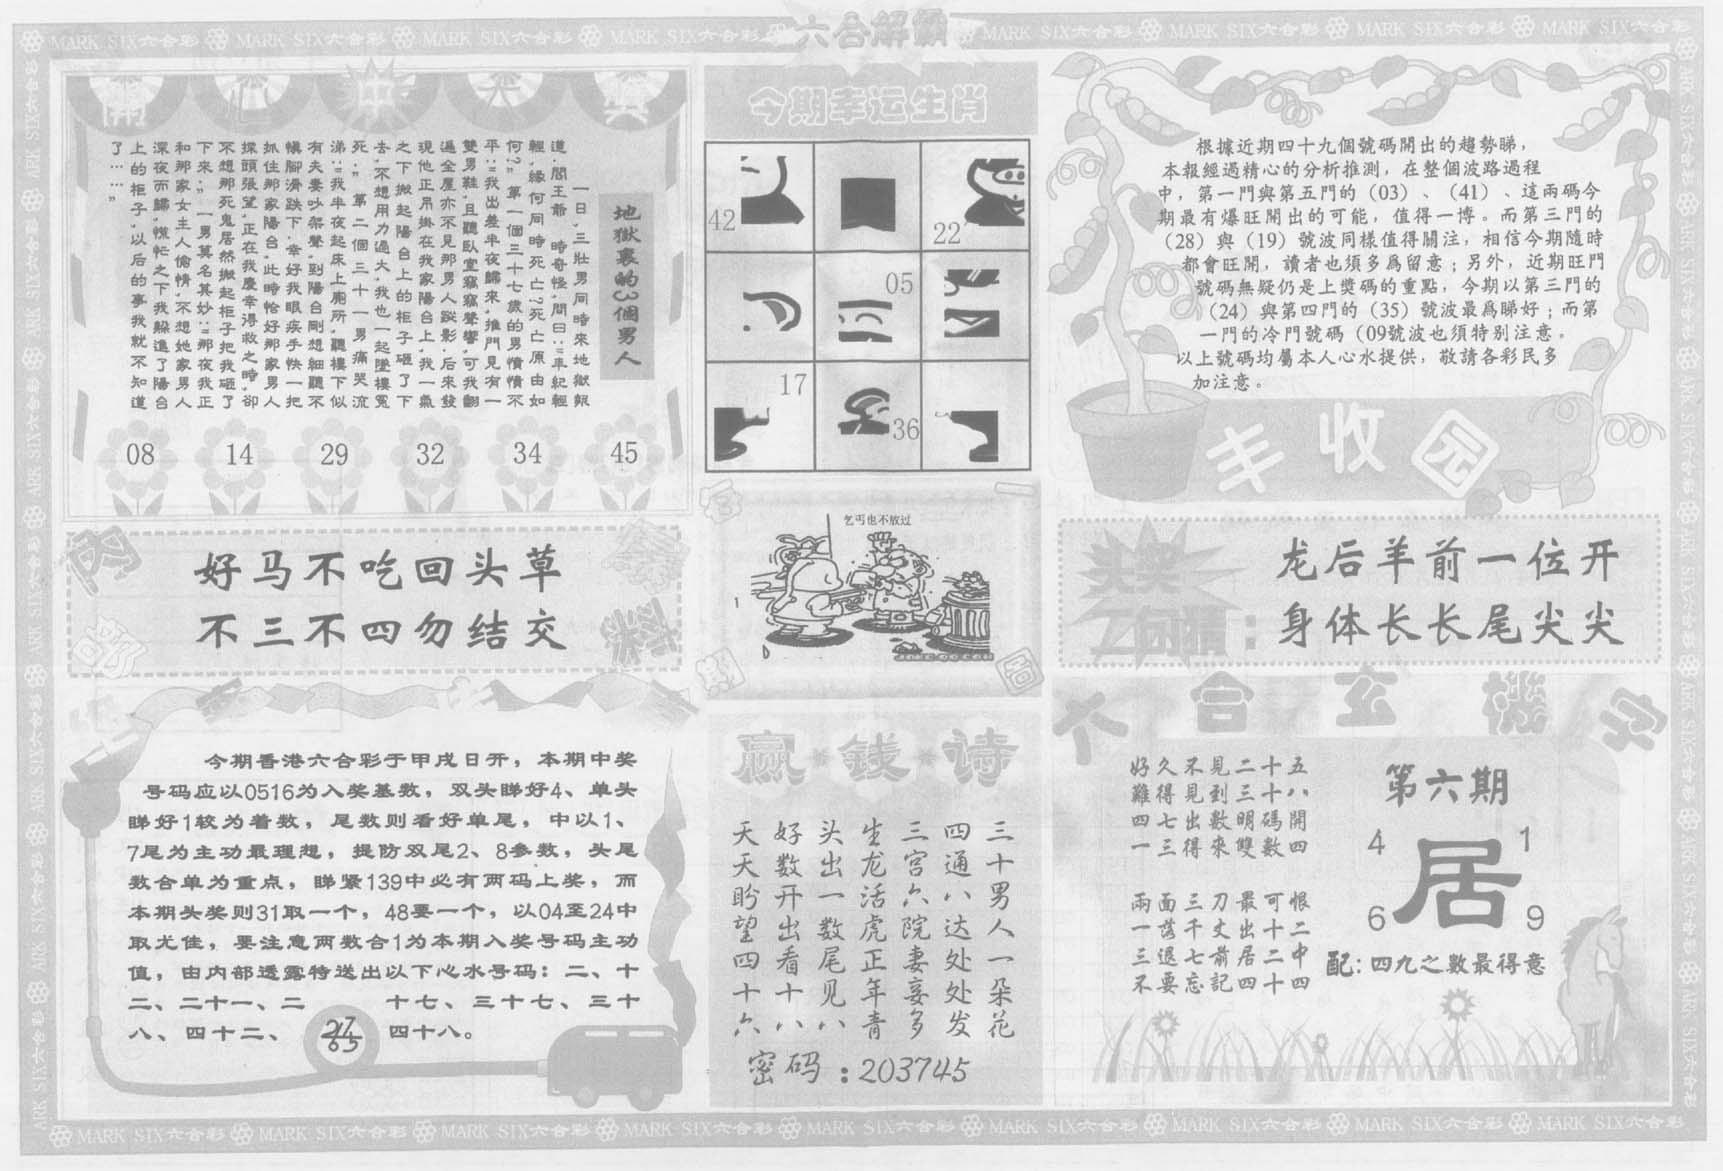 六合解霸
MARK SIX六合彩
地獄裏的3個男人
一日,三壯男同時來地獄報
道.閻王爺 時奇怪,問曰:"年紀輕
輕,緣何同時死亡?死亡原由如
何?" 第一個三十七歲的男憤憤不
平:"我出差半夜歸來,推門見有一
雙男鞋,且聽臥室竊竊聲響,可我翻
遍全屋亦不見那男人蹤影.后來發
現他正吊掛在我家陽台上,我一氣
之下搬起陽台上的柜子砸了下
去,不想用力過大,我也一起墜樓冤
死." 第二個三十一男痛哭流
涕:"我半夜起床上廁所,聽樓下似
有夫妻吵架聲,到陽台剛想細聽不
慎腳滑跌下,幸好我眼疾手快一把
抓住那家陽台,此時恰好那家男人
探頭張望,正在我慶幸得救之時,卻
不想那死鬼居然搬起柜子把我砸了
下來." 一男莫名其妙:"那夜我正
和那家女主人偷情,不想她家男人
深夜而歸,慌忙之下我躲進了陽台
上的柜子,以后的事我就不知道
了……"
08 14 29 32 34 45
今期幸运生肖
42
22
05
17
36
根據近期四十九個號碼開出的趨勢睇，
本報經過精心的分析推測，在整個波路過程
中，第一門與第五門的（03）、（41）、這兩碼今
期最有爆旺開出的可能，值得一博。而第三門的
（28）與（19）號波同樣值得關注，相信今期隨時
都會旺開，讀者也須多爲留意；另外，近期旺門
號碼無疑仍是上獎碼的重點，今期以第三門的
（24）與第四門的（35）號波最爲睇好；而第
一門的冷門號碼（09號波也須特别注意。
以上號碼均屬本人心水提供，敬請各彩民多
加注意。
丰收园
内部
好马不吃回头草
不三不四勿结交
乞丐也不放过
头奖
二句猜：
龙后羊前一位开
身体长长尾尖尖
今期香港六合彩于甲戌日开，本期中奖
号码应以0516为入奖基数，双头睇好4、单头
睇好1较为着数，尾数则看好单尾，中以1、
7尾为主功最理想，提防双尾2、8参数，头尾
数合单为重点，睇紧139中必有两码上奖，而
本期头奖则31取一个，48要一个，以04至24中
取尤佳，要注意两数合1为本期入奖号码主功
值，由内部透露特送出以下心水号码：二、十
二、二十一、二 十七、三十七、三十
八、四十二、 四十八。
赢钱诗
三十男人一朵花
四通八达处处发
三宫六院妻妾多
生龙活虎正年青
头出一数尾见八
好数开出看十八
天天盼望四十六
密码：203745
六合玄機字
好久不見二十五
難得見到三十八
四七出數明碼開
一三得來雙數四
兩面三刀最可恨
一落千丈出十二
三退七前居二中
不要忘記四十四
第六期
4 1
居
6 9
配：四九之數最得意